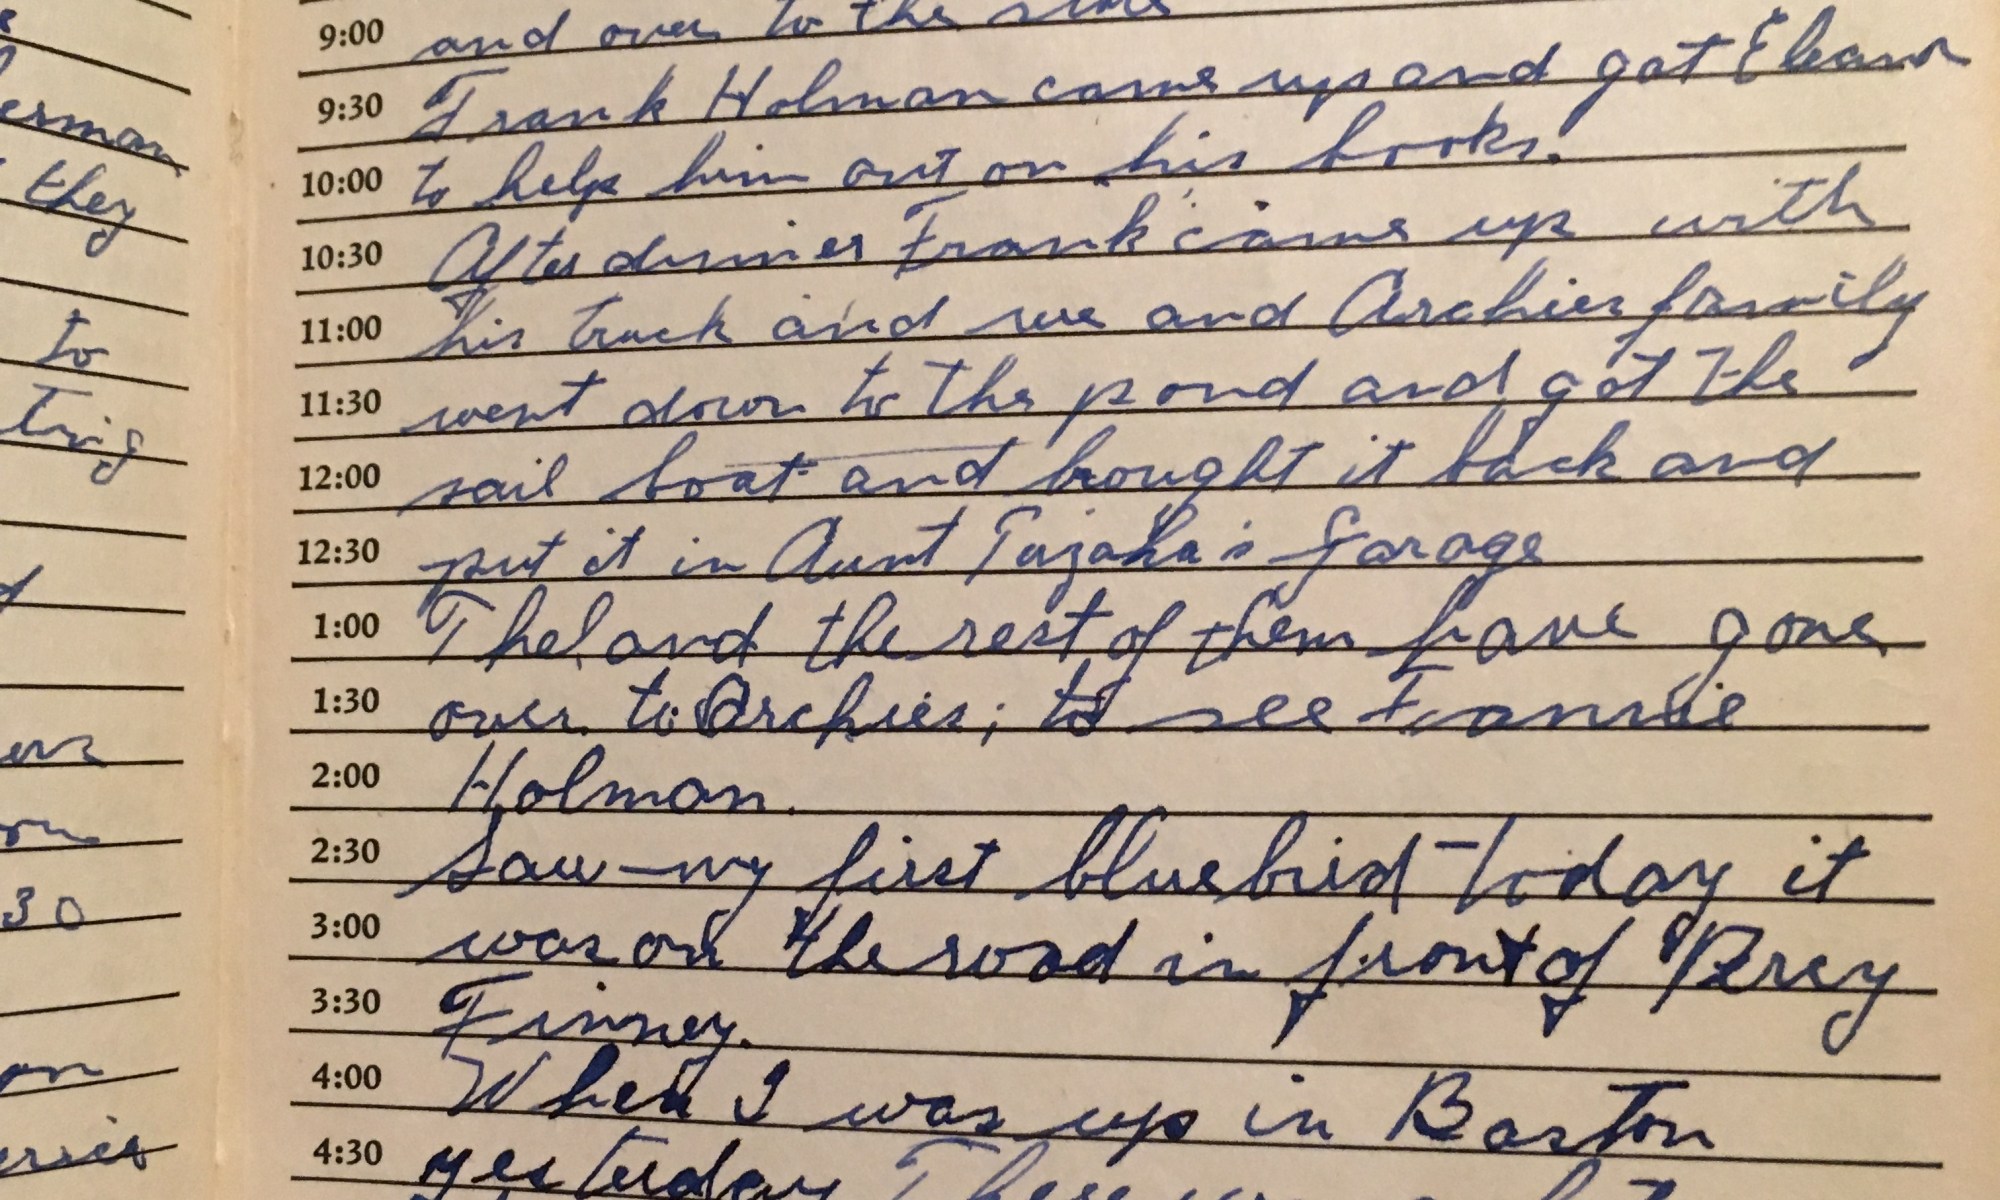 9:00 and over to the store
9:30 Frank Holman came up and got Eleanor
10:00 to help him out on his books.
10:30 After dinner Frank came up with
11:00 his truck and we and Archies family
11:30 went down to the pond and got the
12:00 sail boat and brought it back and
12:30 put it in Aunt Garage
1:00 Thel and the rest of them have gone
1:30 over to Archies; to see Fannie
2:00 Holman.
2:30 Saw my first bluebird today it
3:00 was on the road in front of Percy
3:30 Finney.
4:00 When I was up in Boston
4:30 yesterday There
they
to
30
on